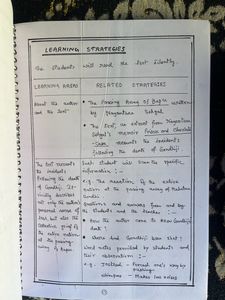 LEARNING STRATEGIES
The students will read the text silently.
LEARNING AREAS
RELATED STRATEGIES
About the author and the text
• The Passing Away Of Bapu written by Nayantara Sehgal
• The text, an extract from Nayantara Sehgal's memoir Prison and Chocolate Cake recounts the incidents following the death of Gandhiji
The text recounts the incidents following the death of Gandhiji. It vividly describes not only the author's personal sense of loss, but also the collective grief of the entire nation at the passing away of Bapu.
Each student will scan the specific information :-
e.g. The reaction of the entire nation at the passing away of Mahatma Gandhi.
Questions and answers from and by the students and the teacher :-
• How the author came to know Gandhiji's death?
• Where and Gandhiji been shot?
Word notes provided by students and their observation :-
e.g. - Jostled - Forced one's way by pushing.